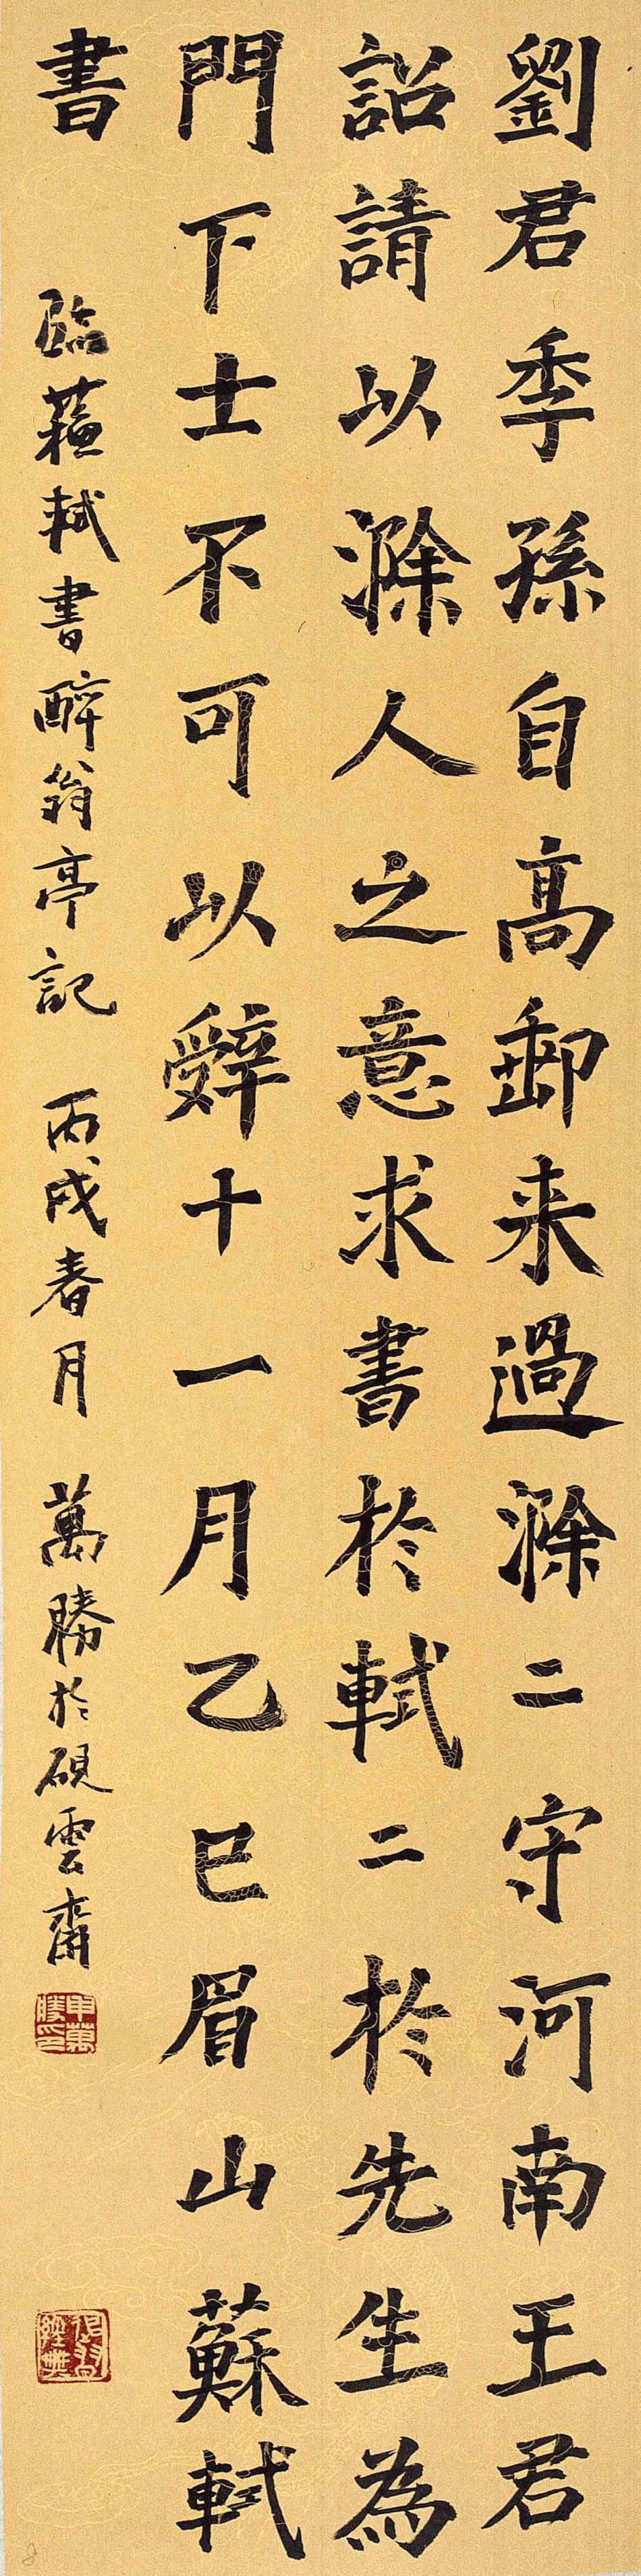 劉君季孫自高郵来過滁二守河南王君
詔請以滁人之意求書於軾二於先生為
門下士不可以辭十一月乙巳眉山蘇軾
書
臨蘓軾書醉翁亭記 丙戌春月 萬勝於硯雲齋